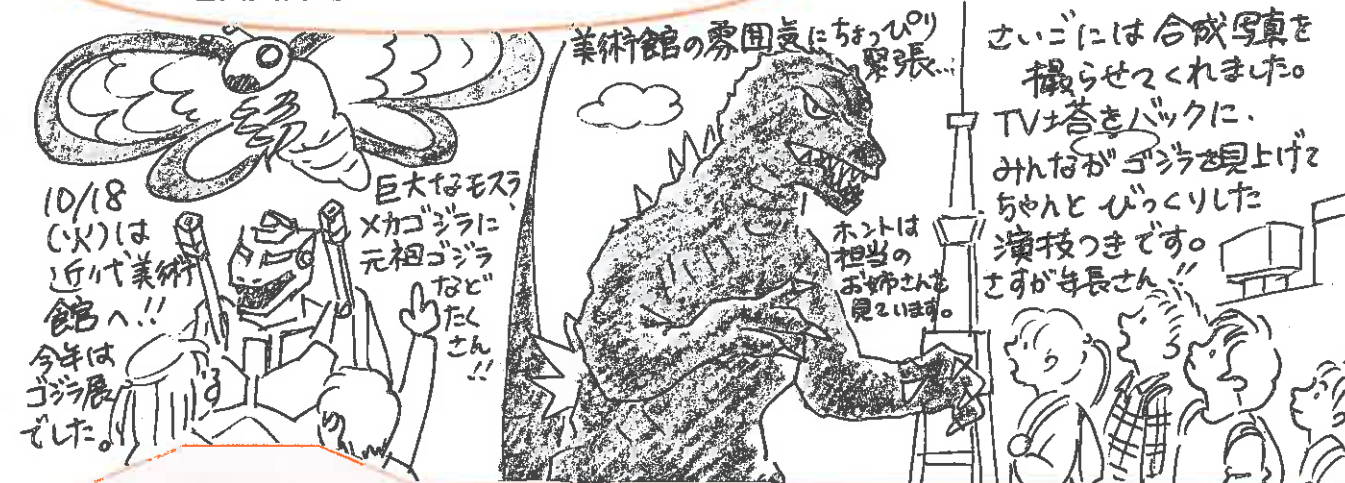 10/18
(火)は
近代美術
館へ!!
今年は
ゴジラ展
でした。
巨大なモスラ、
メカゴジラに
元祖ゴジラ
など
たく
さん!!
美術館の雰囲気にちょっぴり
緊張…
ホントは
担当の
お姉さんを
見ています。
さいごには合成写真を
撮らせてくれました。
TV塔をバックに、
みんなが ゴジラを見上げて
ちゃんと びっくりした
演技つきです。
さすが年長さん!!